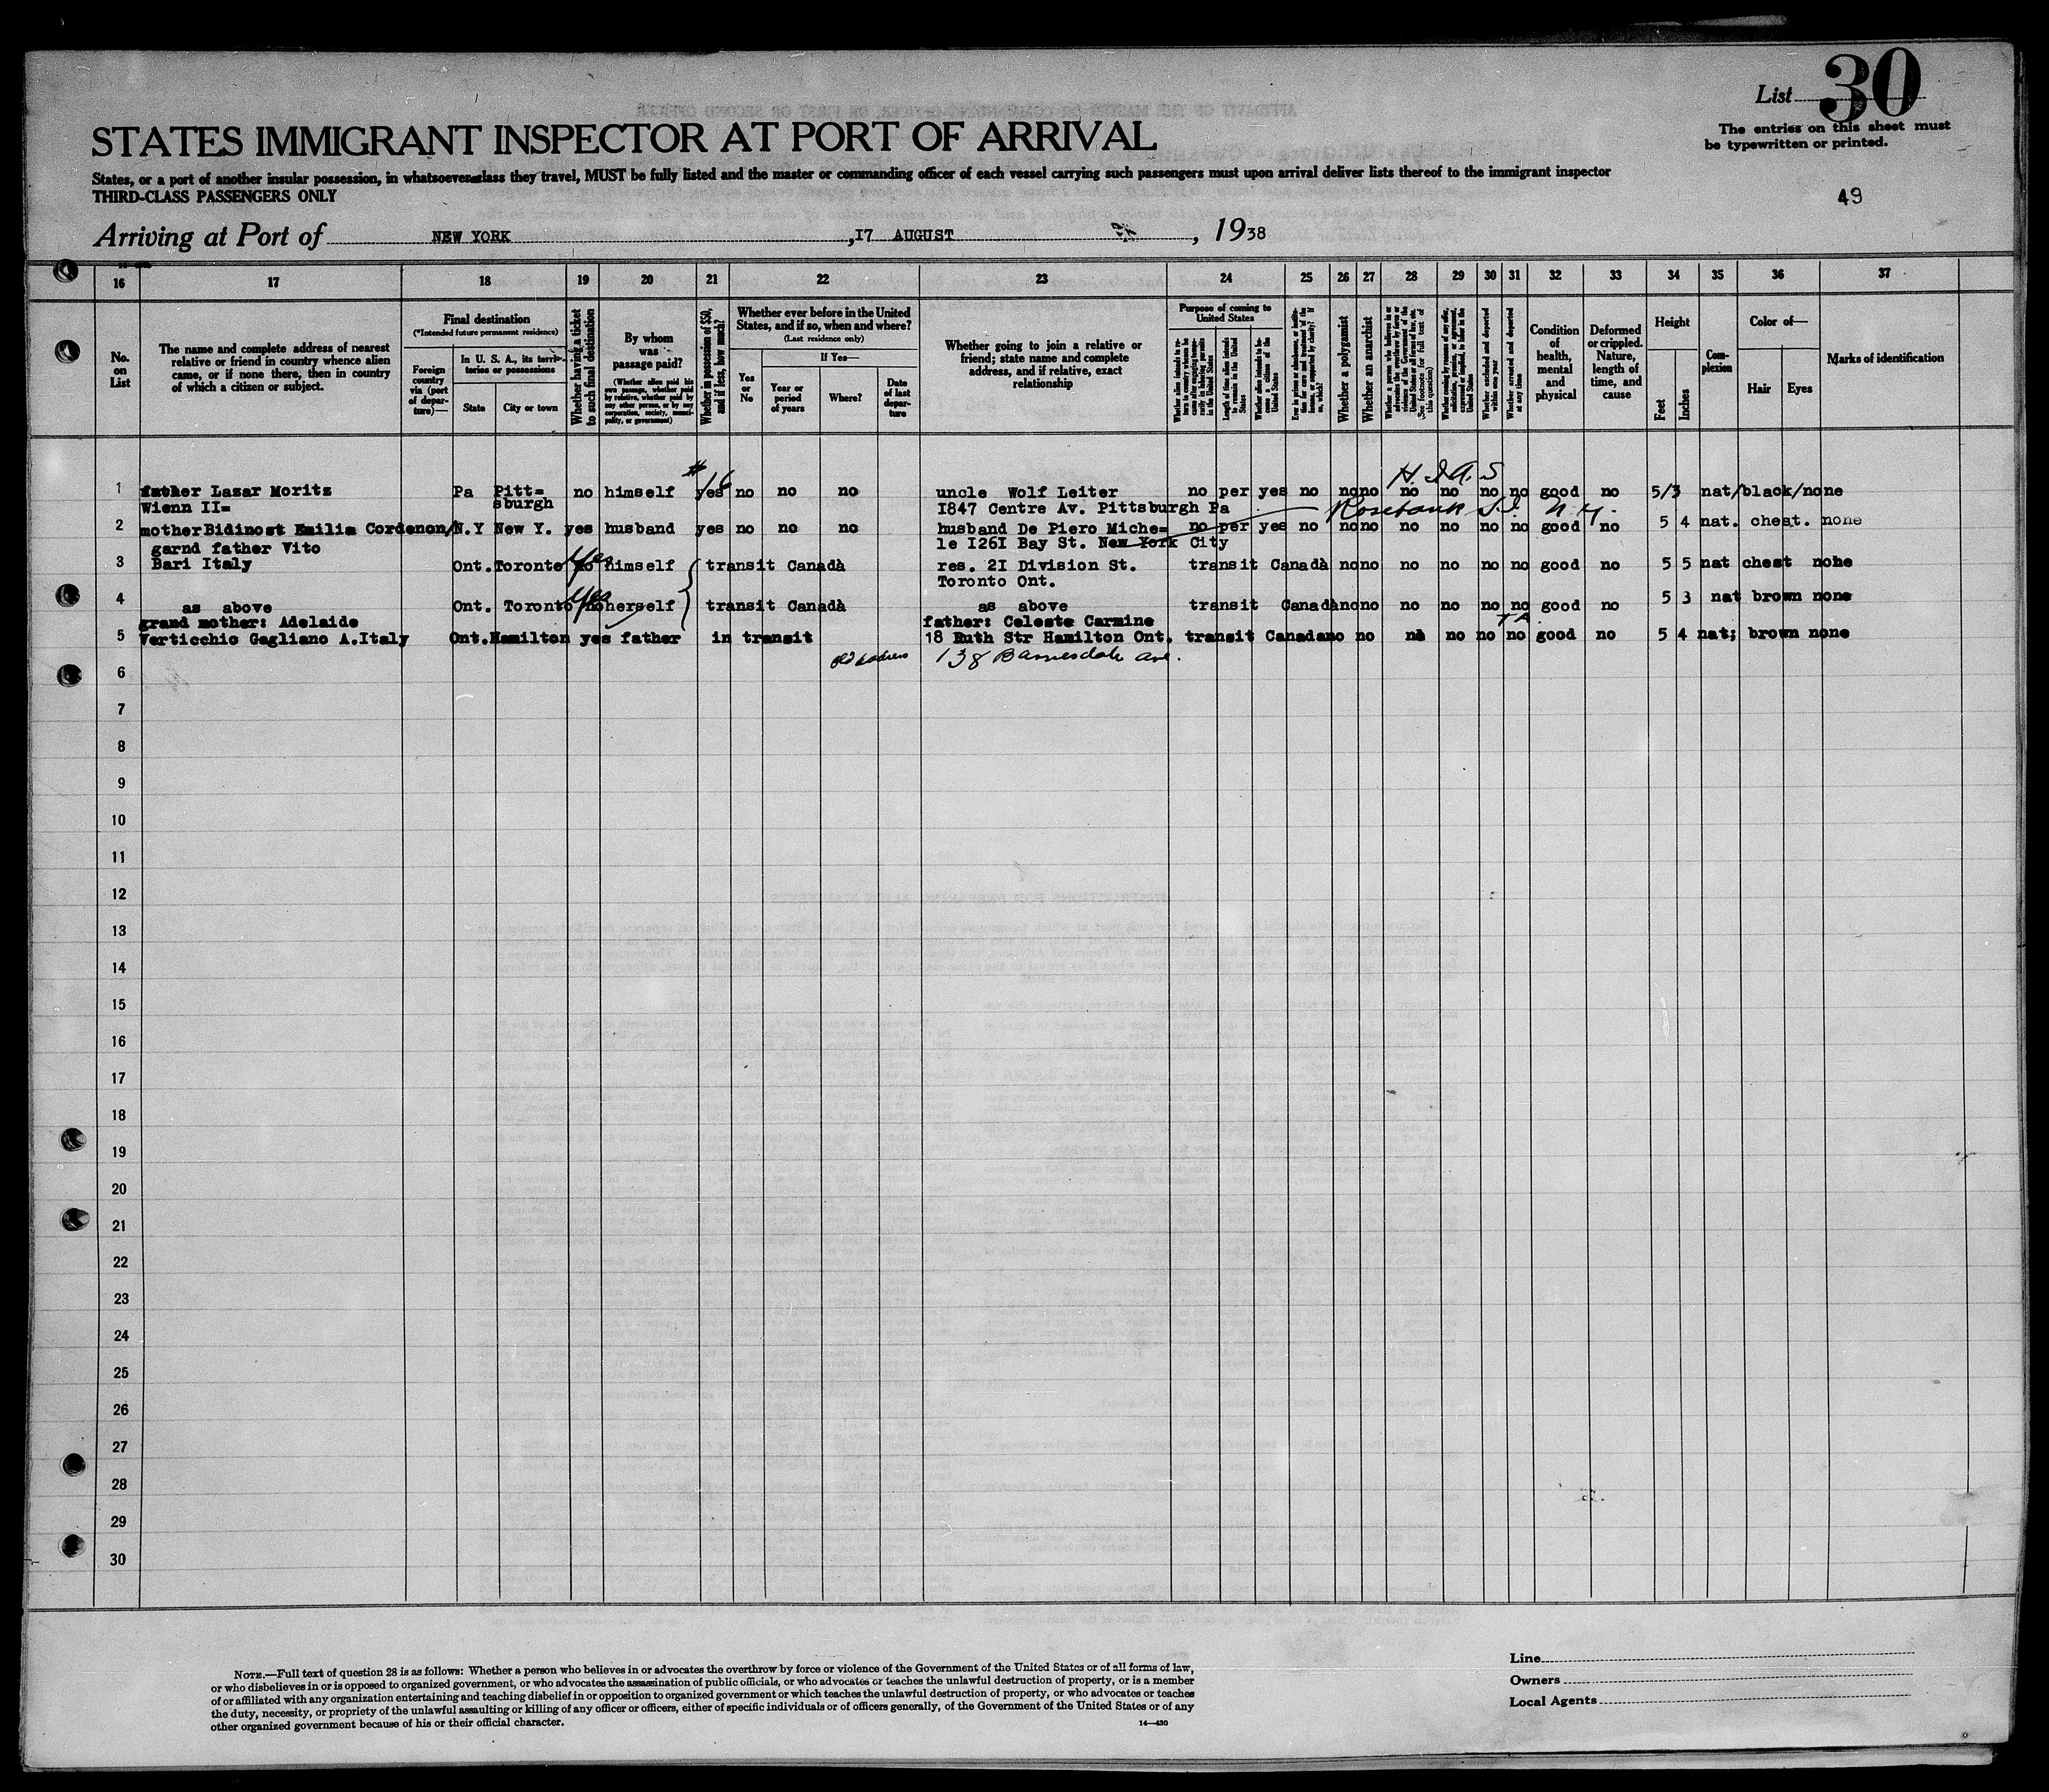 List 30
The entries on this sheet must
be typewritten or printed.
STATES IMMIGRANT INSPECTOR AT PORT OF ARRIVAL
States, or a port of another insular possession, in whatsoever class they travel, MUST be fully listed and the master or commanding officer of each vessel carrying such passengers must upon arrival deliver lists thereof to the immigrant inspector
THIRD-CLASS PASSENGERS ONLY
49
Arriving at Port of NEW YORK, 17 AUGUST, 1938
16 17 18 19 20 21 22 23 24 25 26 27 28 29 30 31 32 33 34 35 36 37
No. on List
The name and complete address of nearest
relative or friend in country whence alien
came, or if none there, then in country
of which a citizen or subject.
Final destination
(*Intended future permanent residence)
Foreign country via (port of departure)—
In U. S. A., its territories or possessions
State
City or town
Whether having a ticket to such final destination
By whom was passage paid?
(Whether alien paid his own passage, whether paid by relative, whether paid by any other person, or by any corporation, society, municipality, or government)
Whether in possession of $50, and if less, how much?
Whether ever before in the United
States, and if so, when and where?
(Last residence only)
Yes or No
If Yes—
Year or period of years
Where?
Date of last departure
Whether going to join a relative or
friend; state name and complete
address, and if relative, exact
relationship
Purpose of coming to
United States
Length of time alien intends to remain in the United States
Whether alien intends to become a citizen of the United States
Whether a polygamist
Whether an anarchist
Whether excluded and deported within one year
Whether arrested and deported at any time
Condition of health, mental and physical
Deformed or crippled. Nature, length of time, and cause
Height
Feet
Inches
Complexion
Color of—
Hair
Eyes
Marks of identification
H.I.A.S
1 father Lasar Moritz Pa Pitt= no himself $16 yes no no no uncle Wolf Leiter no per yes no no no no no no no good no 5/3 nat/black/none
Wienn II= sburgh 1847 Centre Av. Pittsburgh Pa Rosebank S.I. N.Y.
2 mother Bidinost Emilia Cordenon/ N.Y New Y. yes husband yes no no no husband De Piero Miche= no per yes no no no no no no no good no 5 4 nat. chest. none
garnd father Vito le I26I Bay St. New York City
3 Bari Italy Ont. Toronto Yes himself transit Canadà res. 2I Division St. transit Canadà no no no no no no good no 5 5 nat chest none
Toronto Ont.
4 as above Ont. Toronto Yes no herself transit Canadà as above transit Canadà no no no no no no good no 5 3 nat brown none
grand mother: Adelaide father: Celeste Carmine T A
5 Verticchio Gagliano A.Italy Ont. Hamilton yes father in transit 18 Ruth Str Hamilton Ont. transit Canada no no no no no no good no 5 4 nat; brown none
old address 138 Barnesdale ave.
6
7
8
9
10
11
12
13
14
15
16
17
18
19
20
21
22
23
24
25
26
27
28
29
30
NOTE.—Full text of question 28 is as follows: Whether a person who believes in or advocates the overthrow by force or violence of the Government of the United States or of all forms of law,
or who disbelieves in or is opposed to organized government, or who advocates the assassination of public officials, or who advocates or teaches the unlawful destruction of property, or is a member
of or affiliated with any organization entertaining and teaching disbelief in or opposition to organized government or which teaches the unlawful destruction of property, or who advocates or teaches
the duty, necessity, or propriety of the unlawful assaulting or killing of any officer or officers, either of specific individuals or of officers generally, of the Government of the United States or of any
other organized government because of his or their official character.
14—430
Line
Owners
Local Agents